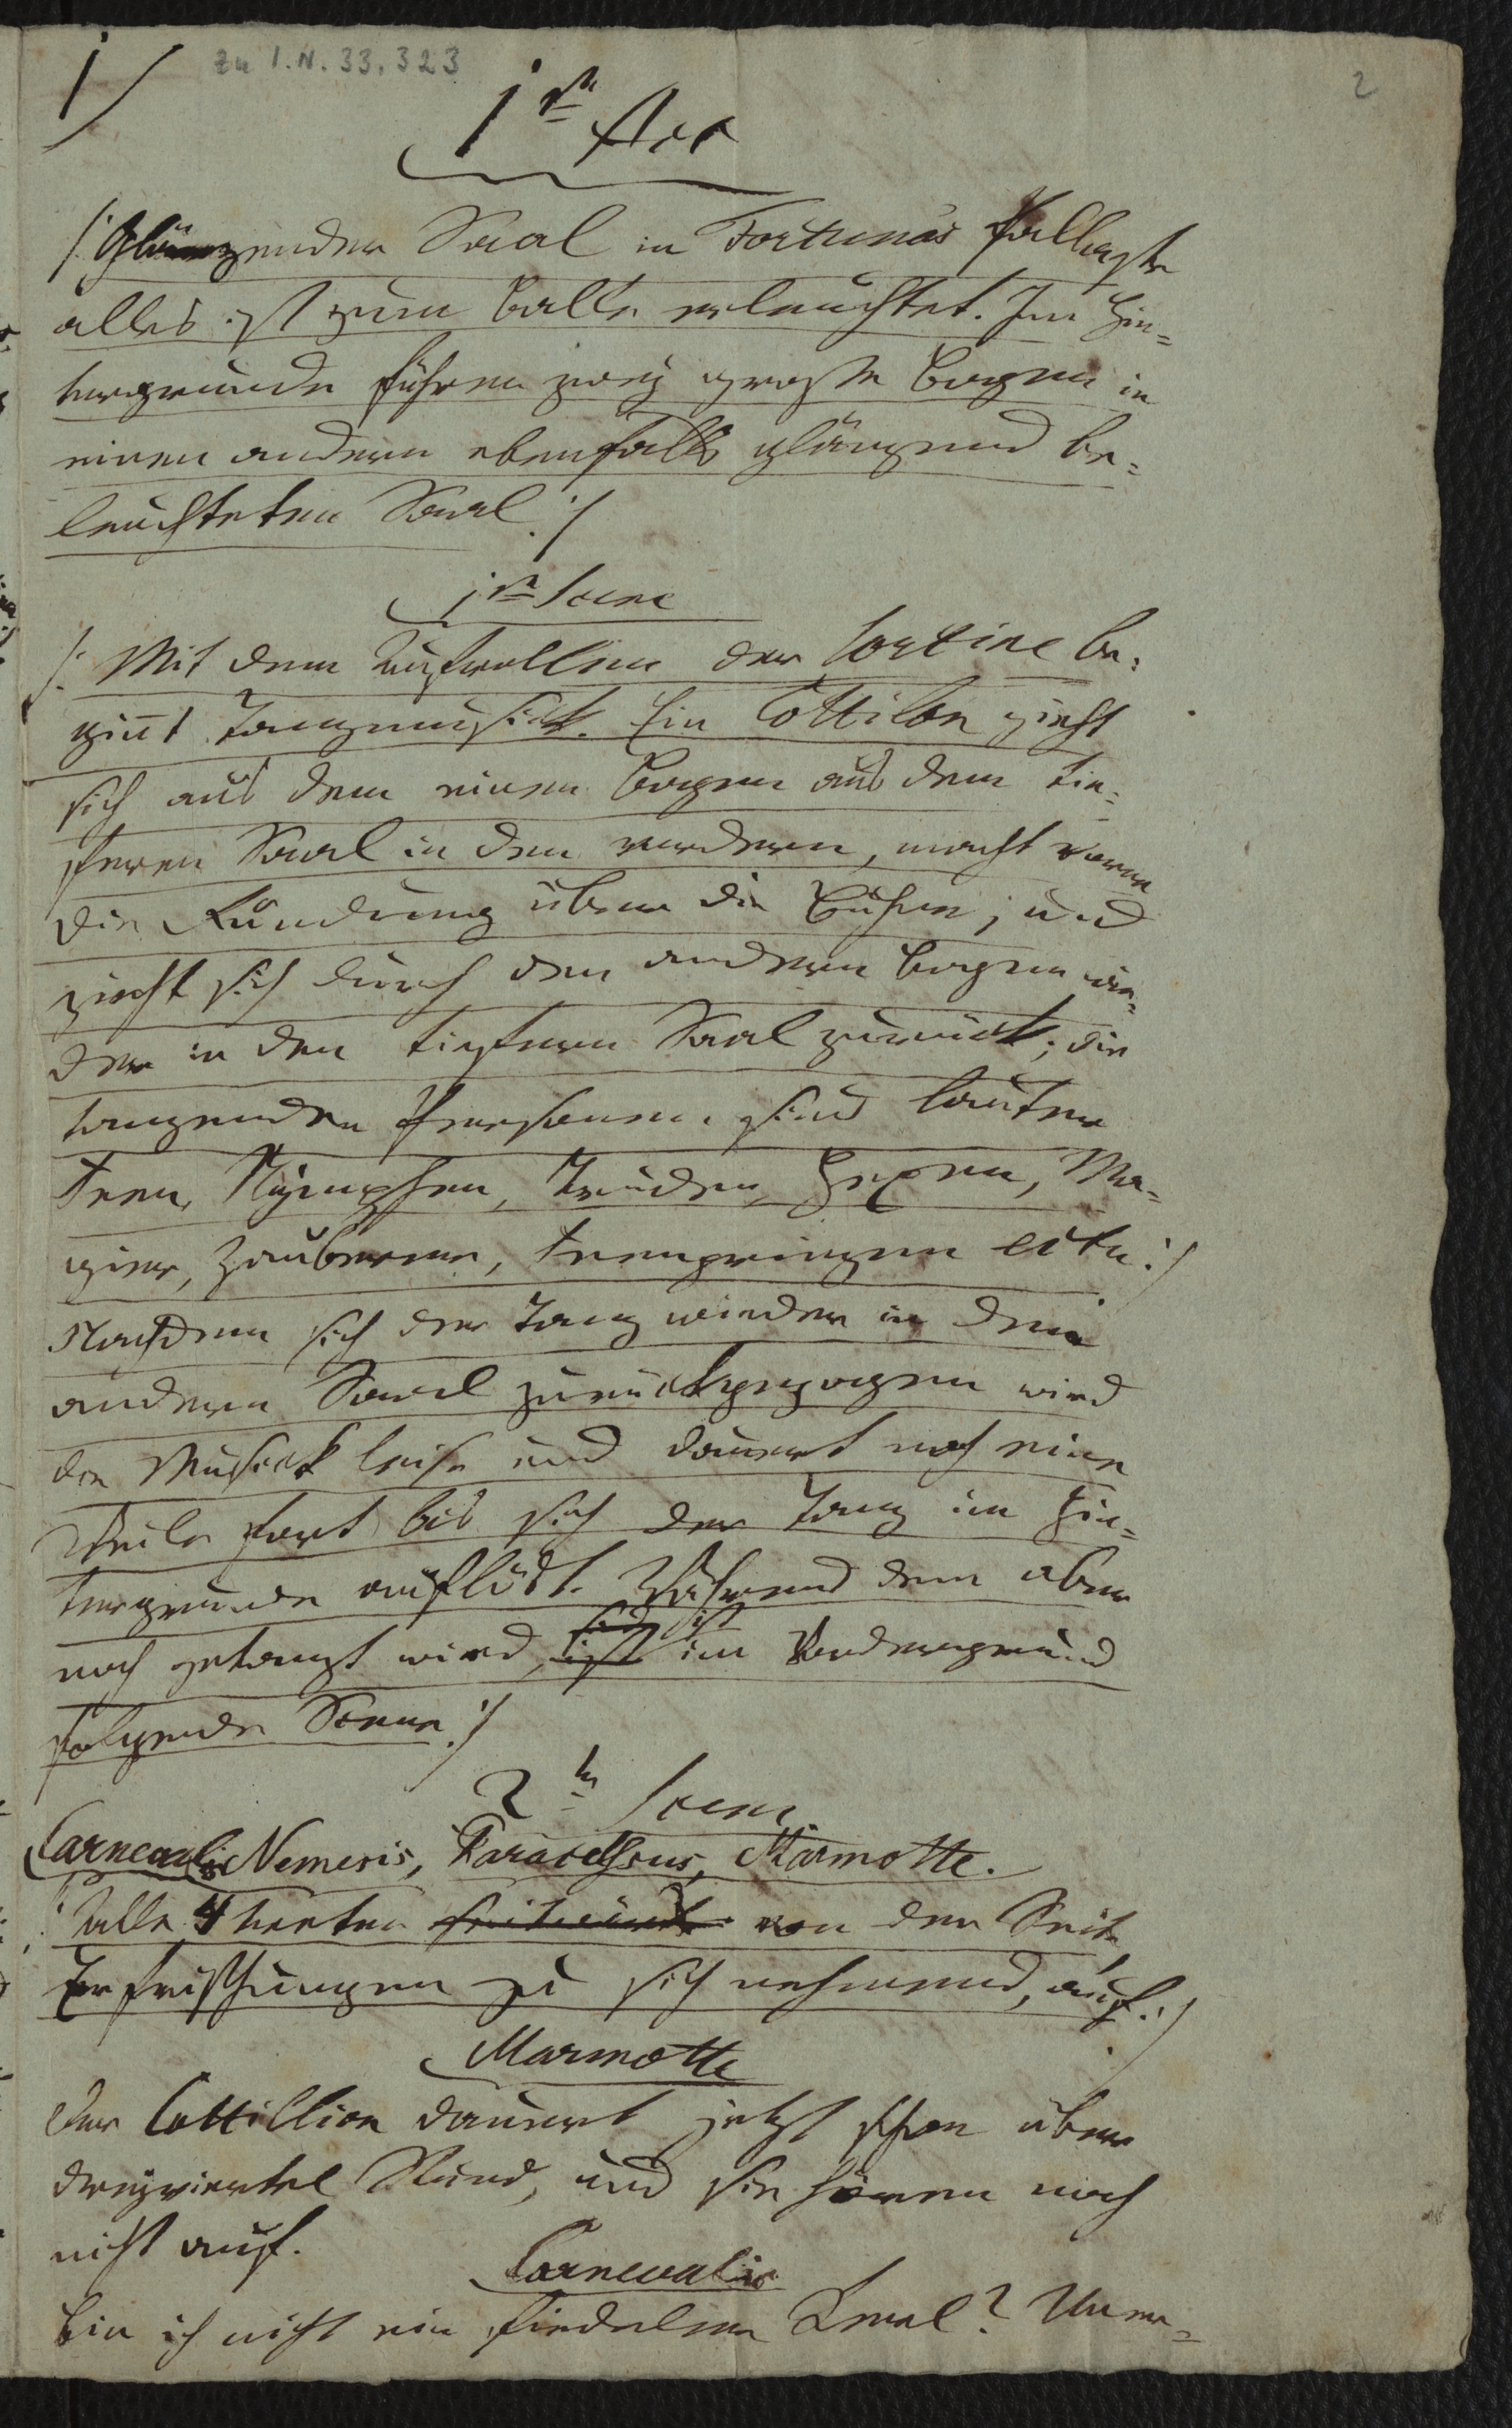 1/
zu I.N. 33.323
2
1r Act
/: Glänzender Saal in Fortuna's Pallaste
alles ist zum Balle erleuchtet. Im Hin=
tergrunde führen zwey große Bogen in
einen andern ebenfalls glänzend be=
leuchteten Saal :/
1re Scene
/: Mit dem Aufrollen der Cortine be=
giñt Tanzmusick. Ein Cottilon zieht
sich aus dem einen Bogen aus dem tie=
feren Saal in den vordern, macht vorne
die Ründung über die Bühne; und
zieht sich durch den anderen Bogen wie=
der in den tiefern Saal zurück; die
tanzenden Personen sind lauter
Feen, Nÿmphen, Truden, Hexen, Ma=
gier, Zauberer, Feenprinzen ectr :/
Nachdem sich der Tanz wieder in den
andern Saal zurückgezogen wird
die Musick leise und dauert noch eine
Weile fort bis sich der Tanz im Hin=
tergrunde auflöst. Während dem aber
noch getanzt wird, ist im Vordergrund
folgende Scene :/
2te Scene
Carnevalis Nemesis, Paracelsus, Marmotte.
/: Alle 4 treten von der Seite
Erfrischungen zu sich nehmend, auf :/
Marmotte
Der Cottillion dauert jetzt schon über
dreyviertel Stund, und sie hören noch
nicht auf.
Carnevalis
Bin ich nicht ein fiedeler Kerl? Uner=